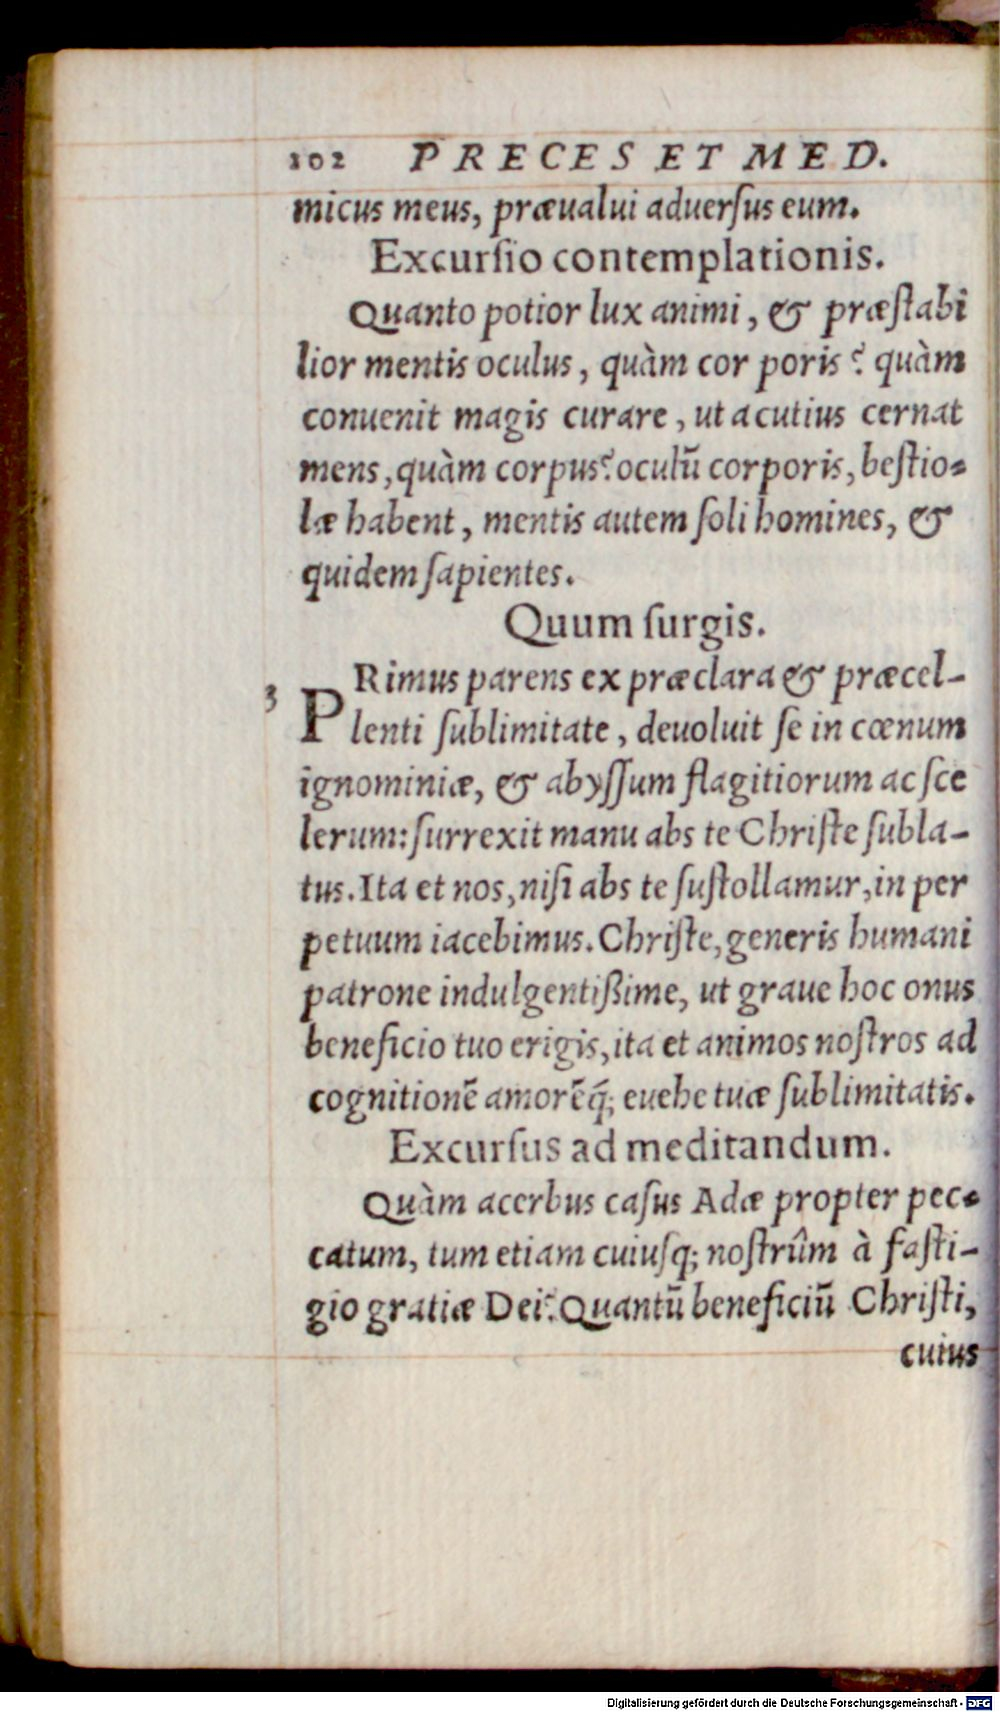 102 PRECES ET MED.
micus meus, præualui aduerſus eum.
Excurſio contemplationis.
Quanto potior lux animi, & præſtabi
lior mentis oculus, quàm cor poris? quàm
conuenit magis curare, ut acutius cernat
mens, quàm corpus? oculũ corporis, beſtio-
læ habent, mentis autem ſoli homines, &
quidem ſapientes.
Quum ſurgis.
3 PRimus parens ex præclara & præcel-
lenti ſublimitate, deuoluit ſe in cœnum
ignominiæ, & abyſſum flagitiorum ac ſce
lerum: ſurrexit manu abs te Chriſte ſubla-
tus. Ita et nos, niſi abs te ſuſtollamur, in per
petuum iacebimus. Chriſte, generis humani
patrone indulgentißime, ut graue hoc onus
beneficio tuo erigis, ita et animos noſtros ad
cognitionẽ amorẽq́; euehe tuæ ſublimitatis.
Excurſus ad meditandum.
Quàm acerbus caſus Adæ propter pec-
catum, tum etiam cuiuſq; noſtrûm à faſti-
gio gratiæ Dei? Quantũ beneficiũ Chriſti,
cuius
Digitalisierung gefördert durch die Deutsche Forschungsgemeinschaft - DFG